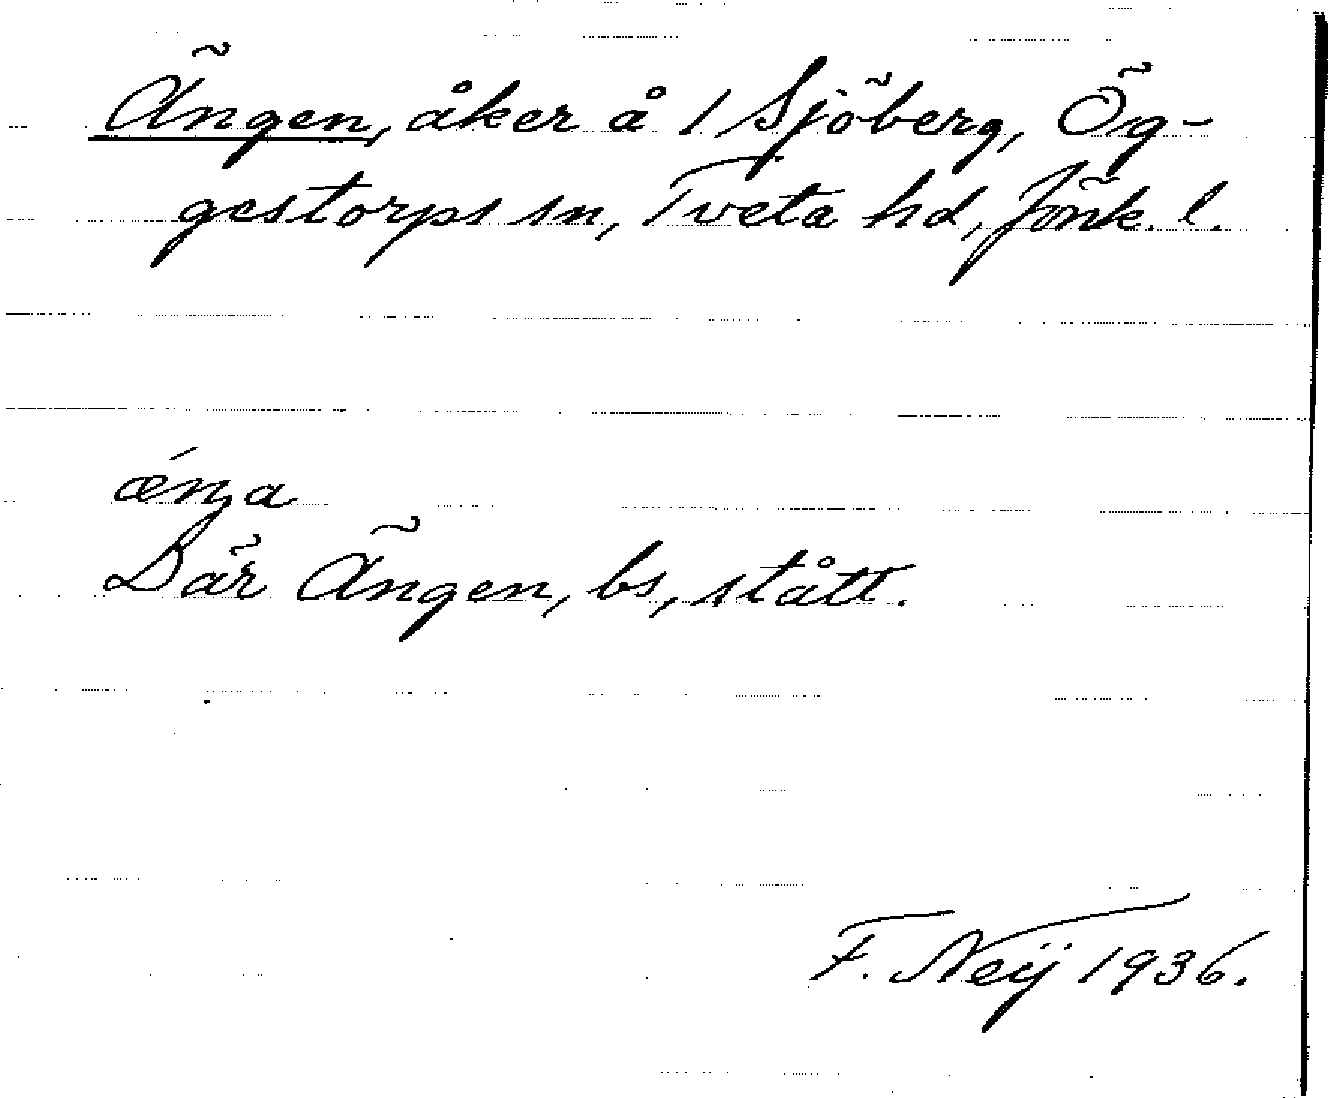 Ängen, åker å 1 Sjöberg, Ög-
gestorps sn, Tveta hd, Jönk. l.
ǽŋa
Där Ängen, bs, stått.
F. Neij 1936.